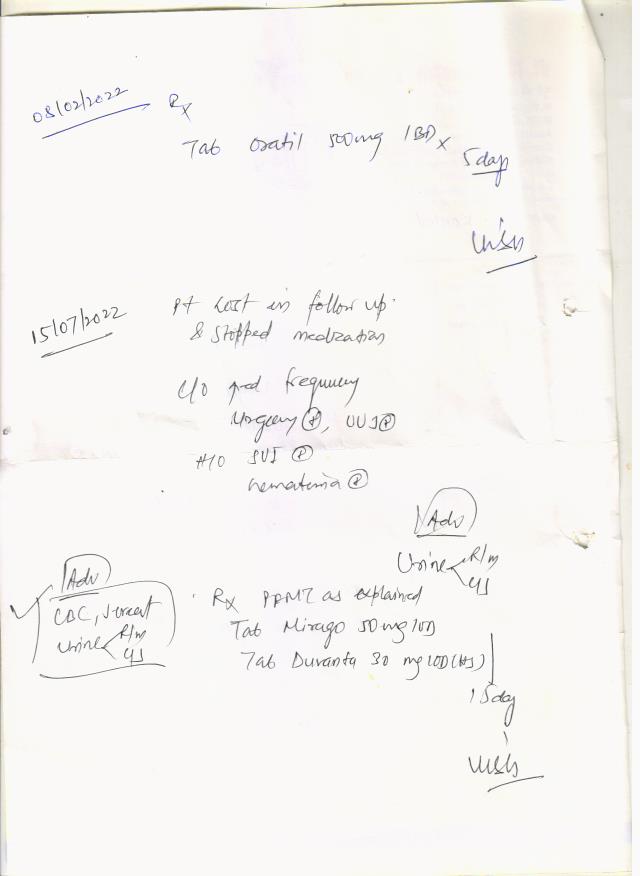 08/02/2022 Rx
Tab Oratil 500mg 1BD x 5 days
15/07/2022 Pt Lost in follow up
& stopped medication
C/O frequency
Urgency ⊕, UUI ⊕
H/O SUI ⊕
hematuria ⊕
Adv
Urine R/m
C/S
Adv
CBC, S.creat
Urine R/m
C/S
Rx PFMT as explained
Tab Mirago 50mg 1OD
Tab Duvanta 30 mg 1OD (HS)
15 day